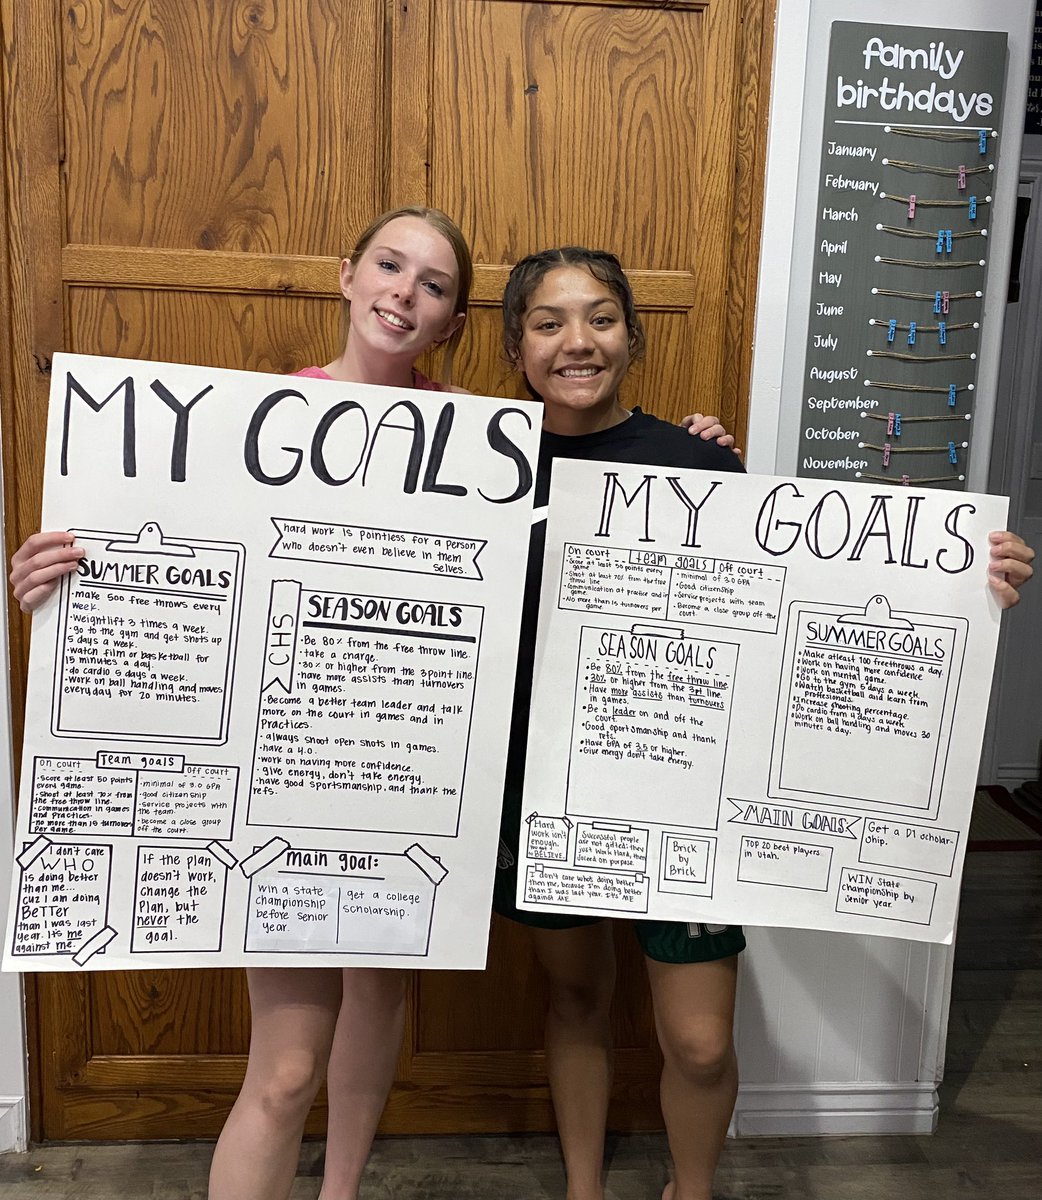 MY GOALS
hard work is pointless for a person
who doesn't even believe in them
selves.
SUMMER GOALS
• make 500 free throws every
week.
• weightlift 3 times a week.
• go to the gym and get shots up
5 days a week.
• watch film or basketball for
15 minutes a day.
• do cardio 5 days a week.
• work on ball handling and moves
everyday for 20 minutes.
CHS
SEASON GOALS
• Be 80% from the free throw line.
• take a charge.
• 30% or higher from the 3 point line.
• have more assists than turnovers
in games.
• Become a better team leader and talk
more on the court in games and in
Practices.
• always shoot open shots in games.
• have a 4.0.
• work on having more confidence.
• give energy, don't take energy.
• have good sportsmanship, and thank the
refs.
on court
Team goals
off court
• score at least 50 points
every game.
• shoot at least 70% from
the free throw line.
• communication in games
and practices.
• no more than 15 turnovers
per game.
• minimal of 3.0 GPA
• good citizenship
• service projects with
the team.
• become a close group
off the court.
I don't care
WHO
is doing better
than me...
cuz I am doing
BeTTer
than I was last
year. It's me
against me.
If the plan
doesn't work,
change the
Plan, but
never the
goal.
main goal:
win a state
championship
before senior
year.
get a college
scholarship.
MY GOALS
on court
team goals
off court
• Score at least 50 points every
game
• Shoot at least 70% from the free
throw line
• Communication at practice and in
game.
• No more than 15 turnovers per
game.
• minimal of 3.0 GPA
• Good citizenship
• Service projects with team
• Become a close group off the
court.
SEASON GOALS
• Be 80% from the free throw line.
• 30% or higher from the 3pt line.
• Have more assists than turnovers
in games.
• Be a leader on and off the
court.
• Good sportsmanship and thank
refs.
• Have GPA of 3.5 or higher.
• Give energy don't take energy.
SUMMER GOALS
• Make atleast 100 freethrows a day.
• Work on having more confidence
• Work on mental game.
• Go to the gym 5 days a week.
• Watch basketball and learn from
professionals.
• Increase shooting percentage.
• Do cardio from 4 days a week.
• Work on ball handling and moves 30
minutes a day.
Hard
work isn't
enough.
BELIEVE.
Successful people
are not gifted; they
just work hard, then
succeed on purpose.
Brick
by
Brick
I don't care who's doing better
then me, because I'm doing better
than I was last year. It's ME
against ME.
MAIN GOALS
TOP 20 best players
in Utah.
Get a D1 scholar-
ship.
WIN State
championship by
Senior year.
family
birthdays
January
February
March
April
May
June
July
August
September
October
November